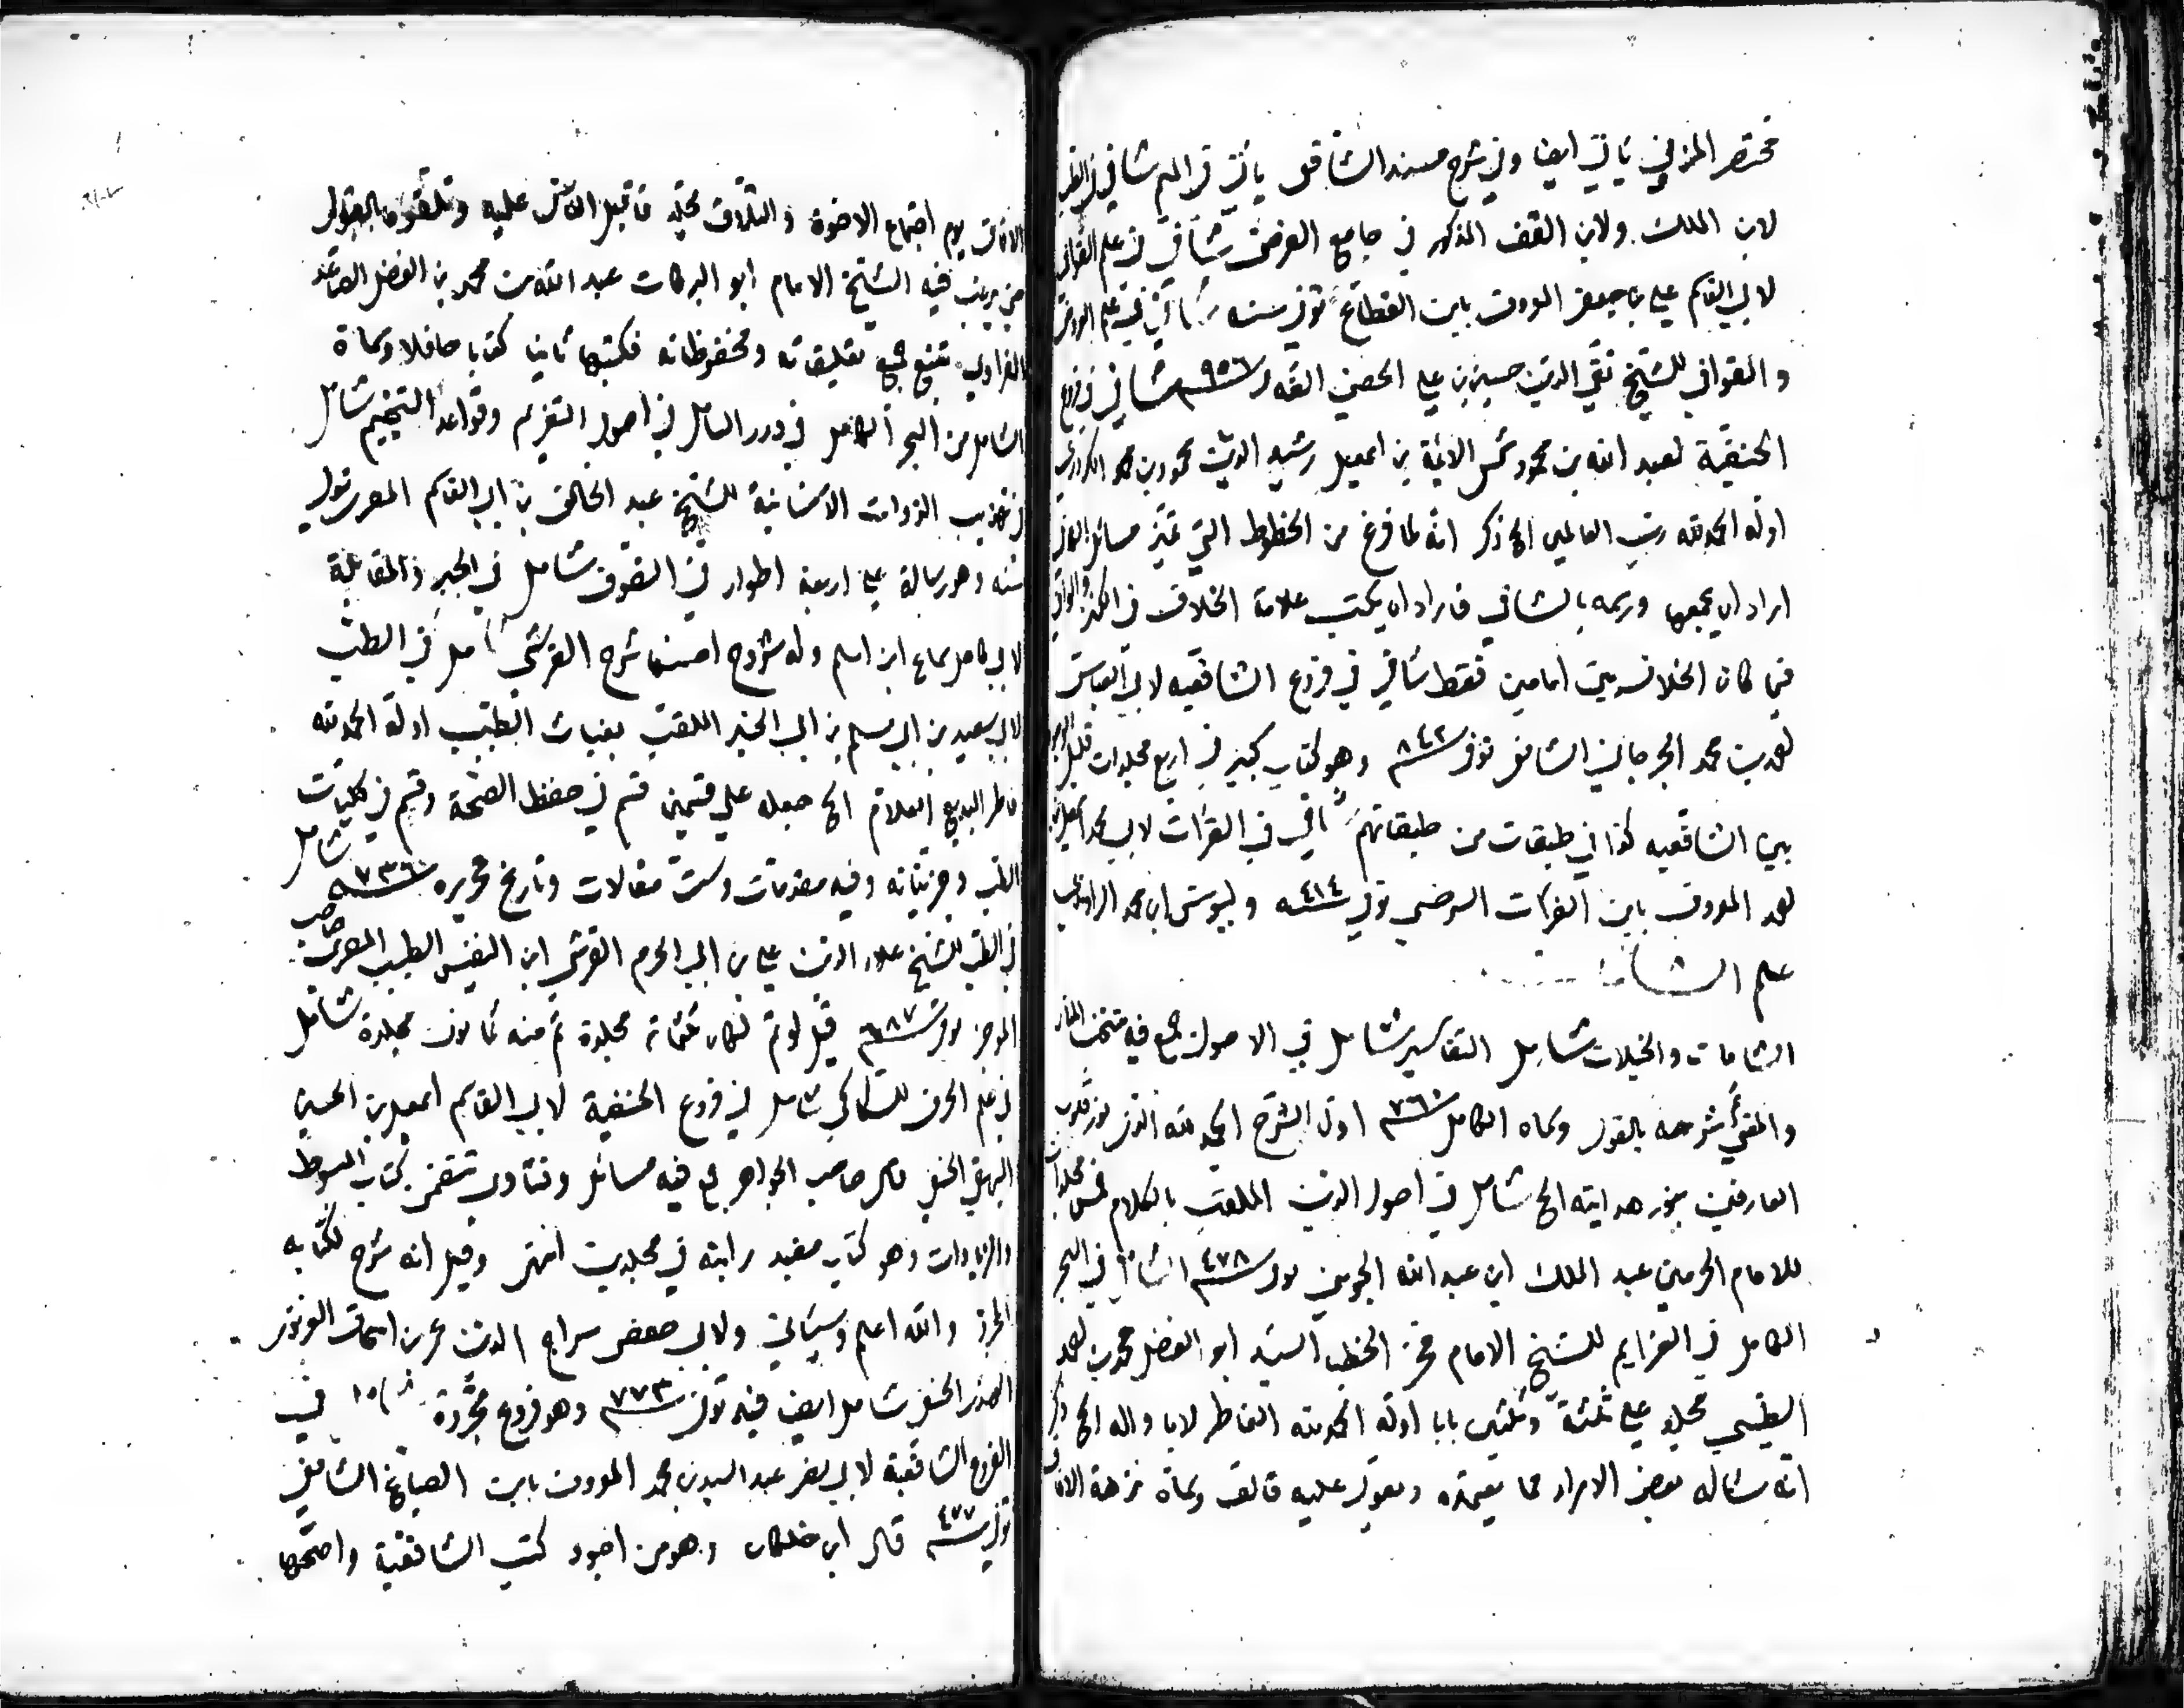 مختصر المزني يأتي ايضا وفي شرح مسند الشافعي يأتي في الميم شافي في الطب
لابن الملك ولابن القف المذكور في جامع الغرض شافي في علم القوافي
لابي القاسم علي بن جعفر المعروف بابن القطاع توفي سنه شافي في علم العروض
والقوافي للشيخ تقي الدين حسين بن علي الحصني الفه ٩٥٦ شافي في فروع
الحنفية لعبد الله بن محمود شمس الائمة بن اسمعيل رشيد الدين محمود بن محمد الكردري
اوله الحمد لله رب العالمين الخ ذكر انه لما فرغ من الخطوط التي تميز مسائل
اراد ان يجمعها وسماه بالشافي فاراد ان يكتب علامة الخلاف في
فيما كان الخلاف بين امامين فقط شافي في فروع الشافعيه لابي العباس
احمد بن محمد الجرجاني الشافعي توفي ٨٤٢ وهو كتاب كبير في اربع مجلدات قليل الوجود
بين الشافعيه كذا في طبقات من طبقاتهم شافي في القرآت لابي محمد اسمعيل بن
احمد المعروف بابن الفرات السرخسي توفي ٤١٤
علم الشامات
الشامات والخيلان شامل التفاسير شامل في الاصول جمع فيه منتخب المنار
والمغني شرحه بالقول وسماه الكامل ٧٦٠ اول الشرح الحمد لله الذي نور قلوب
العارفين بنور هدايته الخ شامل في اصول الدين الملقب بالكلام خمس مجلدات
للامام الحرمين عبد الملك ابن عبد الله الجويني توفي ٤٧٨ الشامل في البحر
الكامل في العزايم للشيخ الامام فخر الخطب السيد ابو الفضل محمد بن احمد
الطبسي مجلد علي ثلثة وثلثين بابا اوله الحمد لله الفاطر لا الخ ذكر
انه سئاله بعض الامراء مما يعتمده ويعول عليه فالف وسماه نزهة الآفاق
يوم اجتماع الاخوة والتلاق بحلب فاقبل الناس عليه وتلقوه بالقبول
فيه الشيخ الامام ابو البركات عبد الله بن محمد بن الفضل الصاعدي
الفراوي تتبع جميع تعليقاته ومحفوظاته فكتبها ثانيا كتابا حافلا وسماه
الشامل من البحر الكامل في دور العامل في اصول التعزيم وقواعد التنجيم شامل
في تهذيب الذوات الانسانية للشيخ عبد الخالق بن ابي القاسم المصري توفي
سنه وهو رسالة علي اربعة اطوار في التصوف شامل في الجبر والمقابلة
لابي كامل شجاع ابن اسلم وله شروح احسنها شرح القرشي شامل في الطب
لابي سعيد بن ابي مسلم بن ابي الخير الملقب بغياث الطبيب اوله الحمد لله
فاطر البديع العلام الخ جعله علي قسمين قسم في حفظ الصحة وقسم في كليات
الطب وجزئياته وفيه مقدمات وست مقالات وتاريخ تحريره ٧٣٦ شامل
في الطب للشيخ علاء الدين علي بن ابي الحرم القرشي ابن النفيس الطبيب المصري صاحب
الموجز توفي ٦٨٧ قيل لو تم لكان ثلثمائة مجلدة تم منه ثمانون مجلدة شامل
في علم الحرف للسكاكي شامل في فروع الحنفية لابي القاسم اسمعيل بن الحسين
البيهقي الحنفي قال صاحب الجواهر جمع فيه مسائل وفتاوي تتضمن كتاب المبسوط
والزيادات وهو كتاب مفيد رايته في مجلدين انتهى وقيل انه شرح لكتابه
المجرد والله اعلم وسيأتي ولابي حفص سراج الدين عمر بن اسحاق الغزنوي
الهندي الحنفي شامل ايضا فيه توفي ٧٧٣ وهو فروع مجردة شامل في
الفروع الشافعية لابي نصر عبد السيد بن محمد المعروف بابن الصباغ الشافعي
توفي ٤٧٧ قال ابن خلكان وهو من اجود كتب الشافعية واصحها